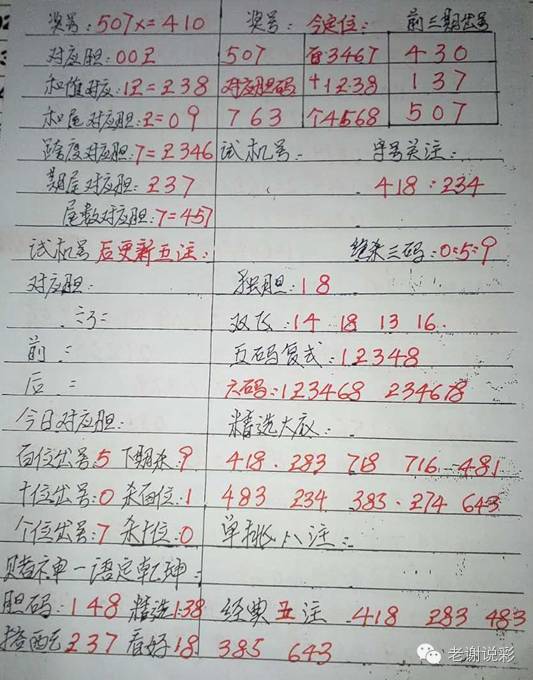 奖号:507x=410 奖号: 今定位: 前三期出号
对应胆:00又 507 百3467 430
和值对应:12=238 对应胆码 十1238 137
和尾对应胆:2=09 763 个4568 507
跨度对应胆:7=2346 试机号: 守号关注:
期尾对应胆:237 418:234
尾数对应胆:7=457
试机号后更新五注: 绝杀三码:0:5:9
对应胆: 独胆:18
双飞:14 18 13 16
前: 五码复式:12348
后: 六码:123468 234678
今日对应胆: 精选大底:
百位出号:5 下期杀:9 418 283 718 716 481
十位出号:0 杀百位:1 483 234 383 274 643
个位出号:7 杀十位:0 单挑八注:
赌神一语定乾坤:
胆码:148 精选138 经典五注 418 283 483
搭配237 看好18 385 643
老谢说彩